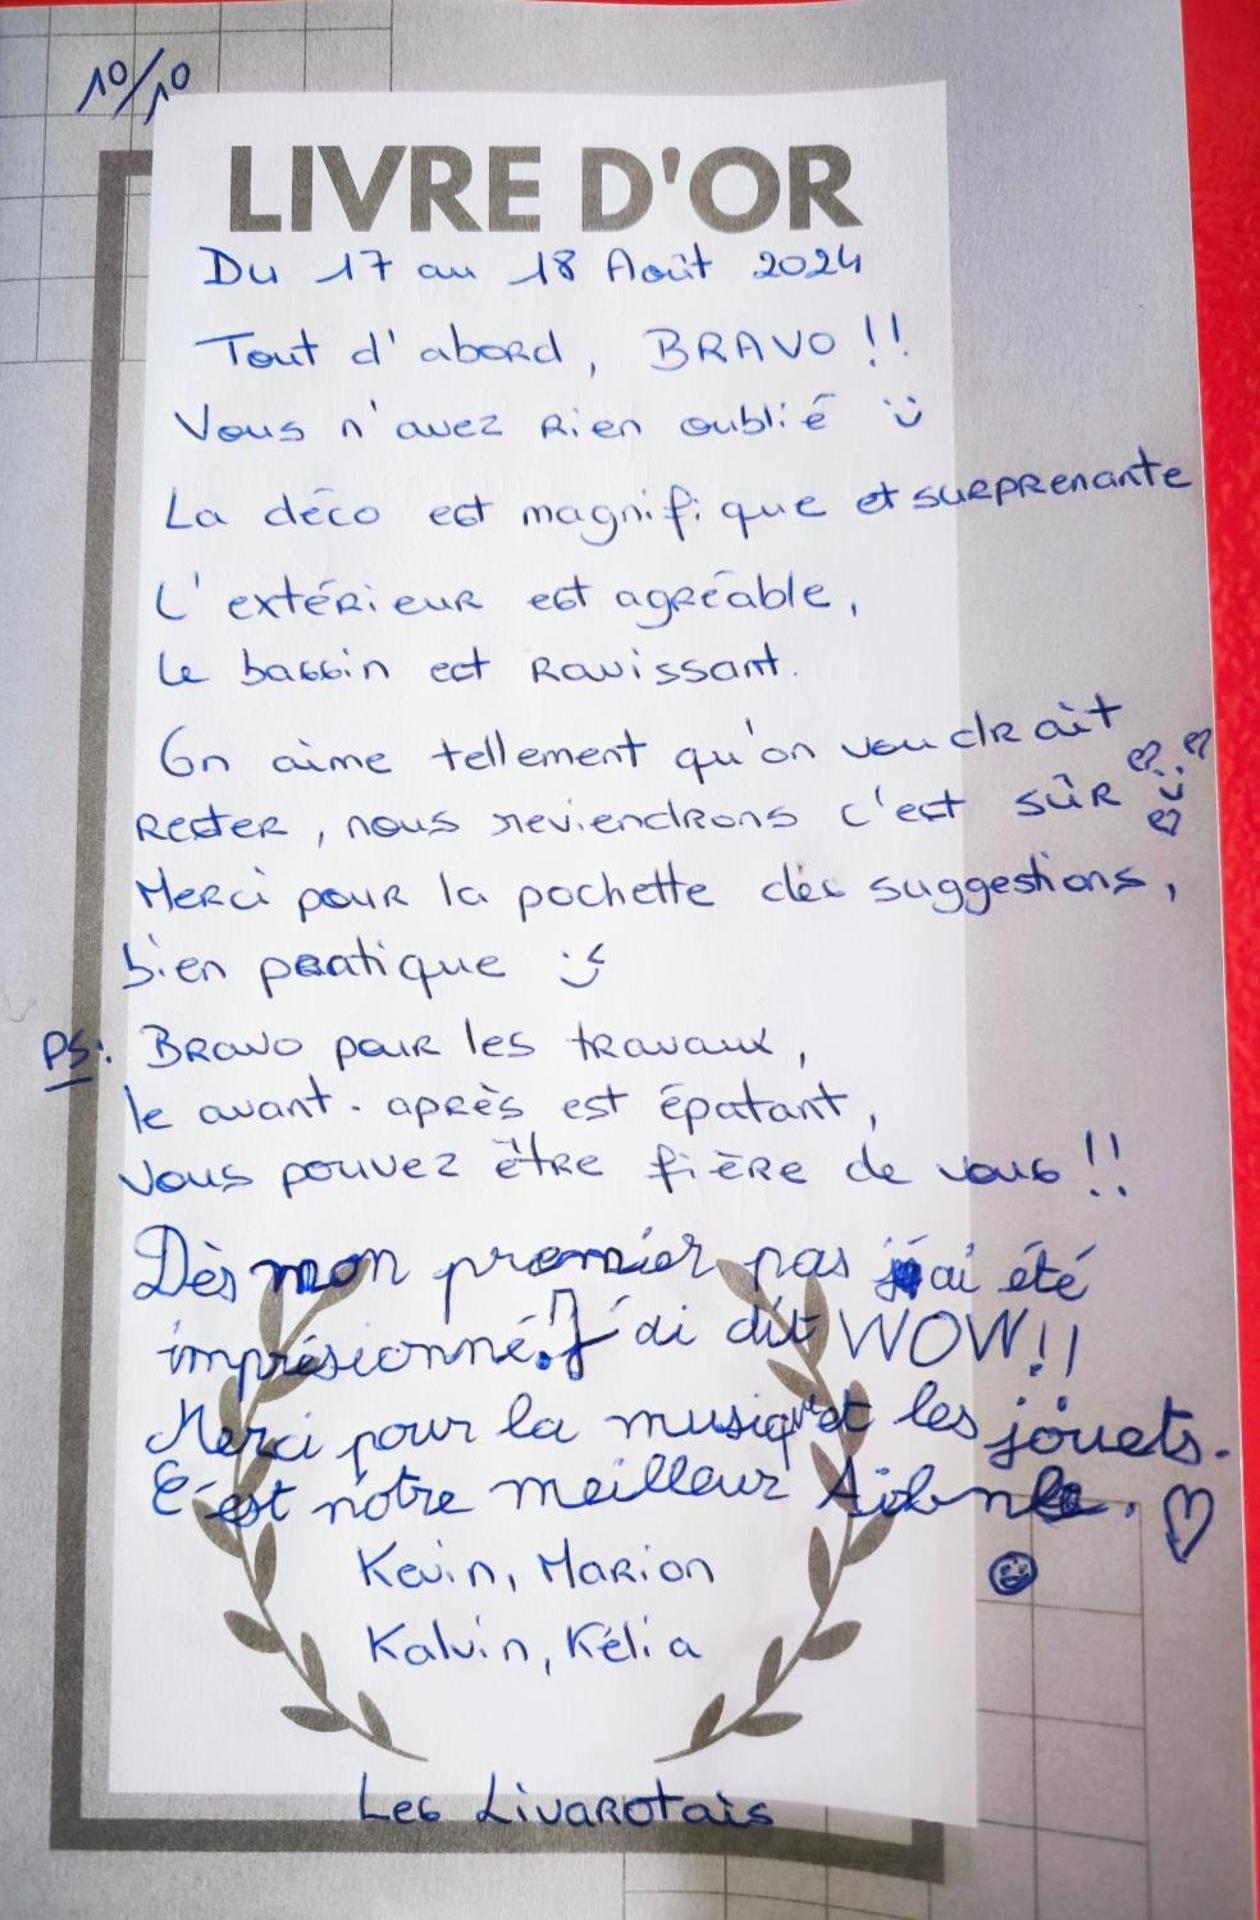 10/10
LIVRE D'OR
Du 17 au 18 Août 2024
Tout d'abord, BRAVO !!
Vous n'avez rien oublié
La déco est magnifique et surprenante
L'extérieur est agréable,
Le bassin est ravissant.
On aime tellement qu'on voudrait
rester, nous reviendrons c'est sûr
Merci pour la pochette des suggestions,
bien pratique
PS: Bravo pour les travaux,
le avant-après est épatant,
Vous pouvez être fière de vous !!
Dès mon premier pas j'ai été
imprésionné. J'ai dit WOW!!
Merci pour la musique et les jouets.
C'est notre meilleur
Kevin, Marion
Kalvin, Kélia
Les Livarotais